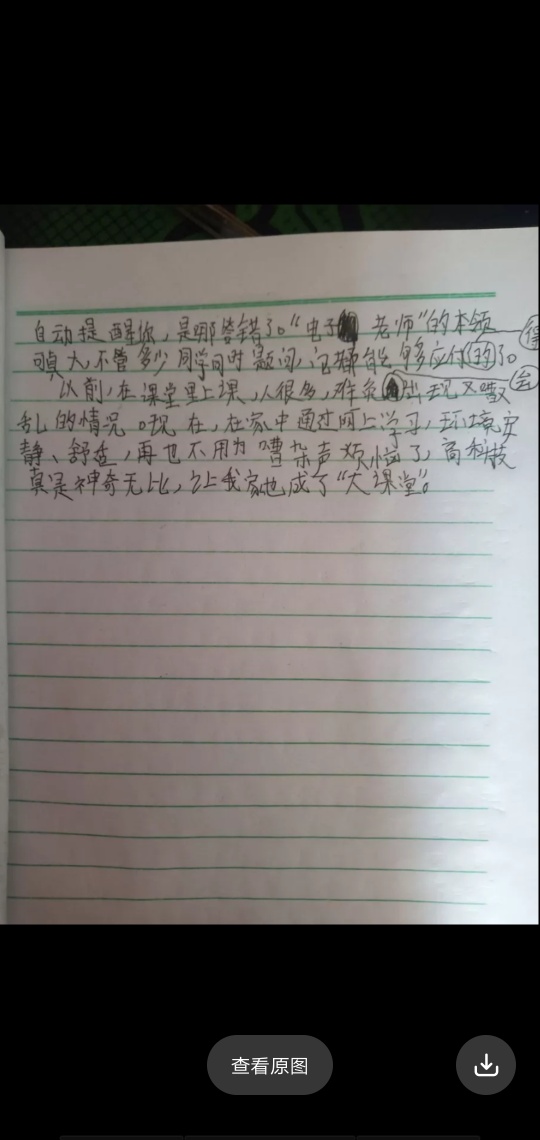 自动提醒你,是哪些错了。“电子老师”的本领
可真大,不管多少同学同时提问,它都能够多应付的了。 得
以前,在课堂里上课,人很多,难免出现又嘈 会
乱的情况。现在,在家中通过网上学习,环境安
静、舒适,再也不用为嘈杂声烦恼了,高科技
真是神奇无比,让我家也成了“大课堂”。
查看原图